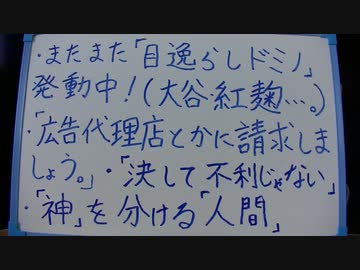 ・またまた「目逸らしドミノ」
発動中！(大谷紅麹…。)
・「広告代理店とかに請求しま
しょう。」・「決して不利じゃない」
・「神」を分ける「人間」